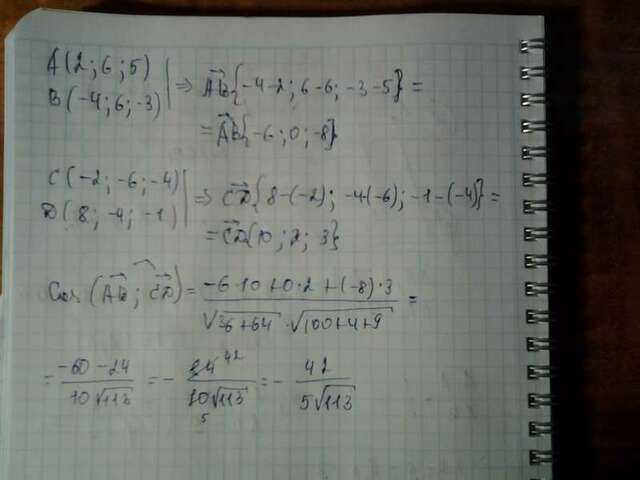 A(2;6;5)
B(-4;6;-3) ⇒ AB{-4-2; 6-6; -3-5} =
= AB{-6;0;-8}
C(-2;-6;-4)
D(8;-4;-1) ⇒ CD{8-(-2); -4(-6); -1-(-4)} =
= CD{10;2;3}
Cos(AB;CD) = (-6·10+0·2+(-8)·3)/(√36+64 · √100+4+9) =
= (-60-24)/(10√113) = - (84 42)/(10√113 5) = - 42/(5√113)